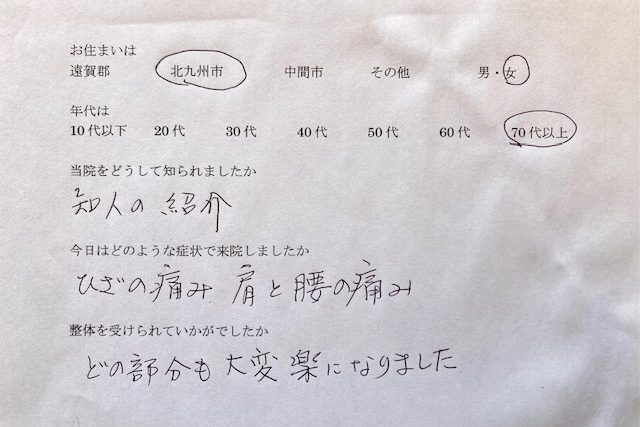 お住まいは
遠賀郡 北九州市 中間市 その他 男・女
年代は
10代以下 20代 30代 40代 50代 60代 70代以上
当院をどうして知られましたか
知人の紹介
今日はどのような症状で来院しましたか
ひざの痛み 肩と腰の痛み
整体を受けられていかがでしたか
どの部分も大変楽になりました